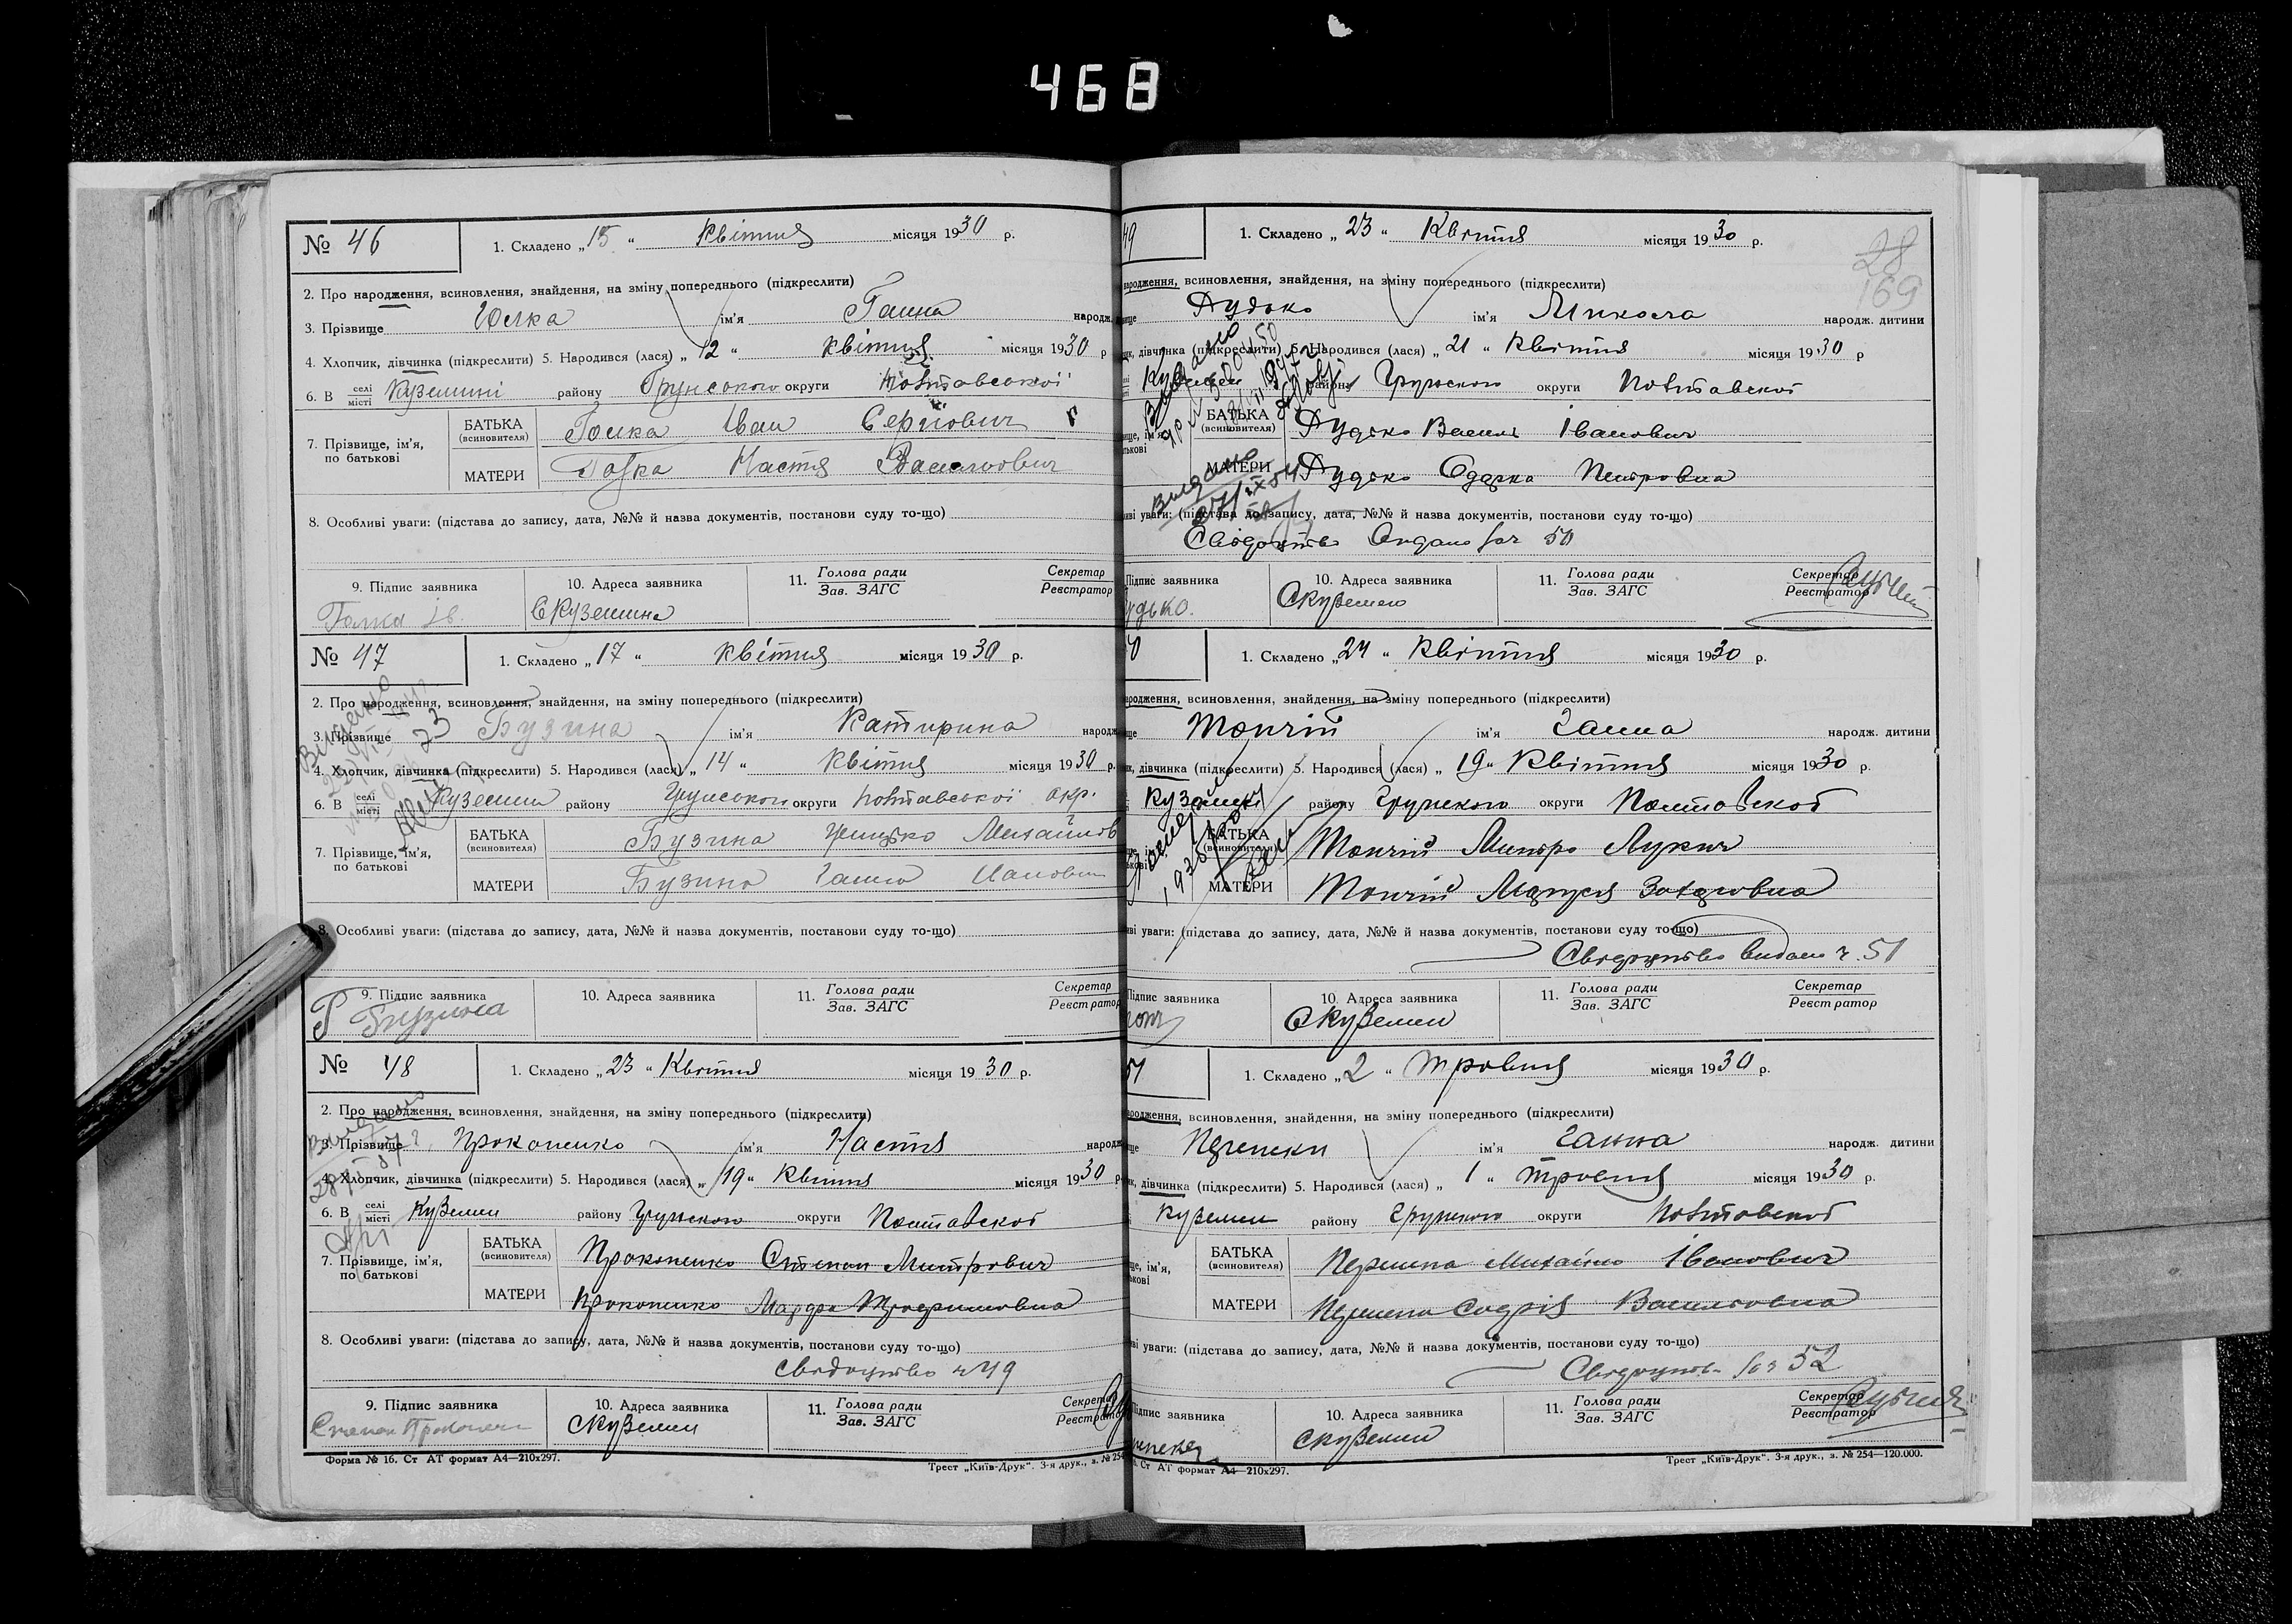 468
№ 46
1. Складено „ 15 “ квітня місяця 1930 р.
2. Про народження, всиновлення, знайдення, на зміну попереднього (підкреслити)
3. Прізвище ім'я Ганна народж.
4. Хлопчик, дівчинка (підкреслити) 5. Народився (лася) „ 12 “ квітня місяця 1930 р
6. В селі місті Куземині району Грунського округи Полтавської
7. Прізвище, ім'я, по батькові
БАТЬКА (всиновителя) Голка Іван Сергійович
МАТЕРИ Настя
8. Особливі уваги: (підстава до запису, дата, №№ й назва документів, постанови суду то-що)
9. Підпис заявника 10. Адреса заявника 11. Голова ради Зав. ЗАГС Секретар Реєстратор
С Куземина
№ 47
1. Складено „ 17 “ квітня місяця 1930 р.
2. Про народження, всиновлення, знайдення, на зміну попереднього (підкреслити)
3. Прізвище Бузина ім'я Катирина народж
4. Хлопчик, дівчинка (підкреслити) 5. Народився (лася) „ 14 “ квітня місяця 1930 р.
6. В селі місті Куземин району Грунського округи Полтавської окр.
7. Прізвище, ім'я, по батькові
БАТЬКА (всиновителя) Бузина Грицько Михайлов
МАТЕРИ Бузина
8. Особливі уваги: (підстава до запису, дата, №№ й назва документів, постанови суду то-що)
9. Підпис заявника 10. Адреса заявника 11. Голова ради Зав. ЗАГС Секретар Реєстратор
Бузина
№ 48
1. Складено „ 23 “ Квітня місяця 1930 р.
2. Про народження, всиновлення, знайдення, на зміну попереднього (підкреслити)
3. Прізвище Прокопенко ім'я Настя народж
4. Хлопчик, дівчинка (підкреслити) 5. Народився (лася) „ 19 “ Квітня місяця 1930 р.
6. В селі місті Куземин району Грунського округи Полтавскої
7. Прізвище, ім'я, по батькові
БАТЬКА (всиновителя) Прокопенко Степан Митрович
МАТЕРИ Прокопенко Марфа Трофимовна
8. Особливі уваги: (підстава до запису, дата, №№ й назва документів, постанови суду то-що)
Свідоцтво ч 49
9. Підпис заявника 10. Адреса заявника 11. Голова ради Зав. ЗАГС Секретар Реєстратор
Степан С Куземин
Форма № 16. Ст АТ формат А4—210x297. Трест „Київ-Друк“. 3-я друк., з. № 254
49
1. Складено „ 23 “ Квітня місяця 1930 р.
28
169
народження, всиновлення, знайдення, на зміну попереднього (підкреслити)
Дудько ім'я Микола народж. дитини
дівчинка (підкреслити) 5. Народився (лася) „ 21 “ Квітня місяця 1930 р
Куземин району Грунского округи Полтавскої
БАТЬКА (всиновителя) Дудько Василь Іванович
МАТЕРИ Дудько Одарка Петровна
уваги: (підстава до запису, дата, №№ й назва документів, постанови суду то-що)
Свідоцтво 50
Підпис заявника 10. Адреса заявника 11. Голова ради Зав. ЗАГС Секретар Реєстратор
удько. С Куземен
1. Складено „ 24 “ Квітня місяця 1930 р.
народження, всиновлення, знайдення, на зміну попереднього (підкреслити)
Мончій ім'я Ганна народж. дитини
дівчинка (підкреслити) 5. Народився (лася) „ 19 “ Квітня місяця 1930 р.
району Грунского округи Полтавскої
БАТЬКА (всиновителя) Мончій Митро Лукич
МАТЕРИ Мончій Захаровна
уваги: (підстава до запису, дата, №№ й назва документів, постанови суду то-що)
Свідоцтво видано ч. 51
Підпис заявника 10. Адреса заявника 11. Голова ради Зав. ЗАГС Секретар Реєстратор
С Куземин
51
1. Складено „ 2 “ Травня місяця 1930 р.
народження, всиновлення, знайдення, на зміну попереднього (підкреслити)
ім'я Ганна народж. дитини
дівчинка (підкреслити) 5. Народився (лася) „ 1 “ Травня місяця 1930 р.
Куземин району Грунского округи Полтавскої
БАТЬКА (всиновителя) Михайло Іванович
МАТЕРИ Василовна
уваги: (підстава до запису, дата, №№ й назва документів, постанови суду то-що)
52
Підпис заявника 10. Адреса заявника 11. Голова ради Зав. ЗАГС Секретар Реєстратор
С Куземин
Ст АТ формат А4—210x297. Трест „Київ-Друк“. 3-я друк., з. № 254—120.000.